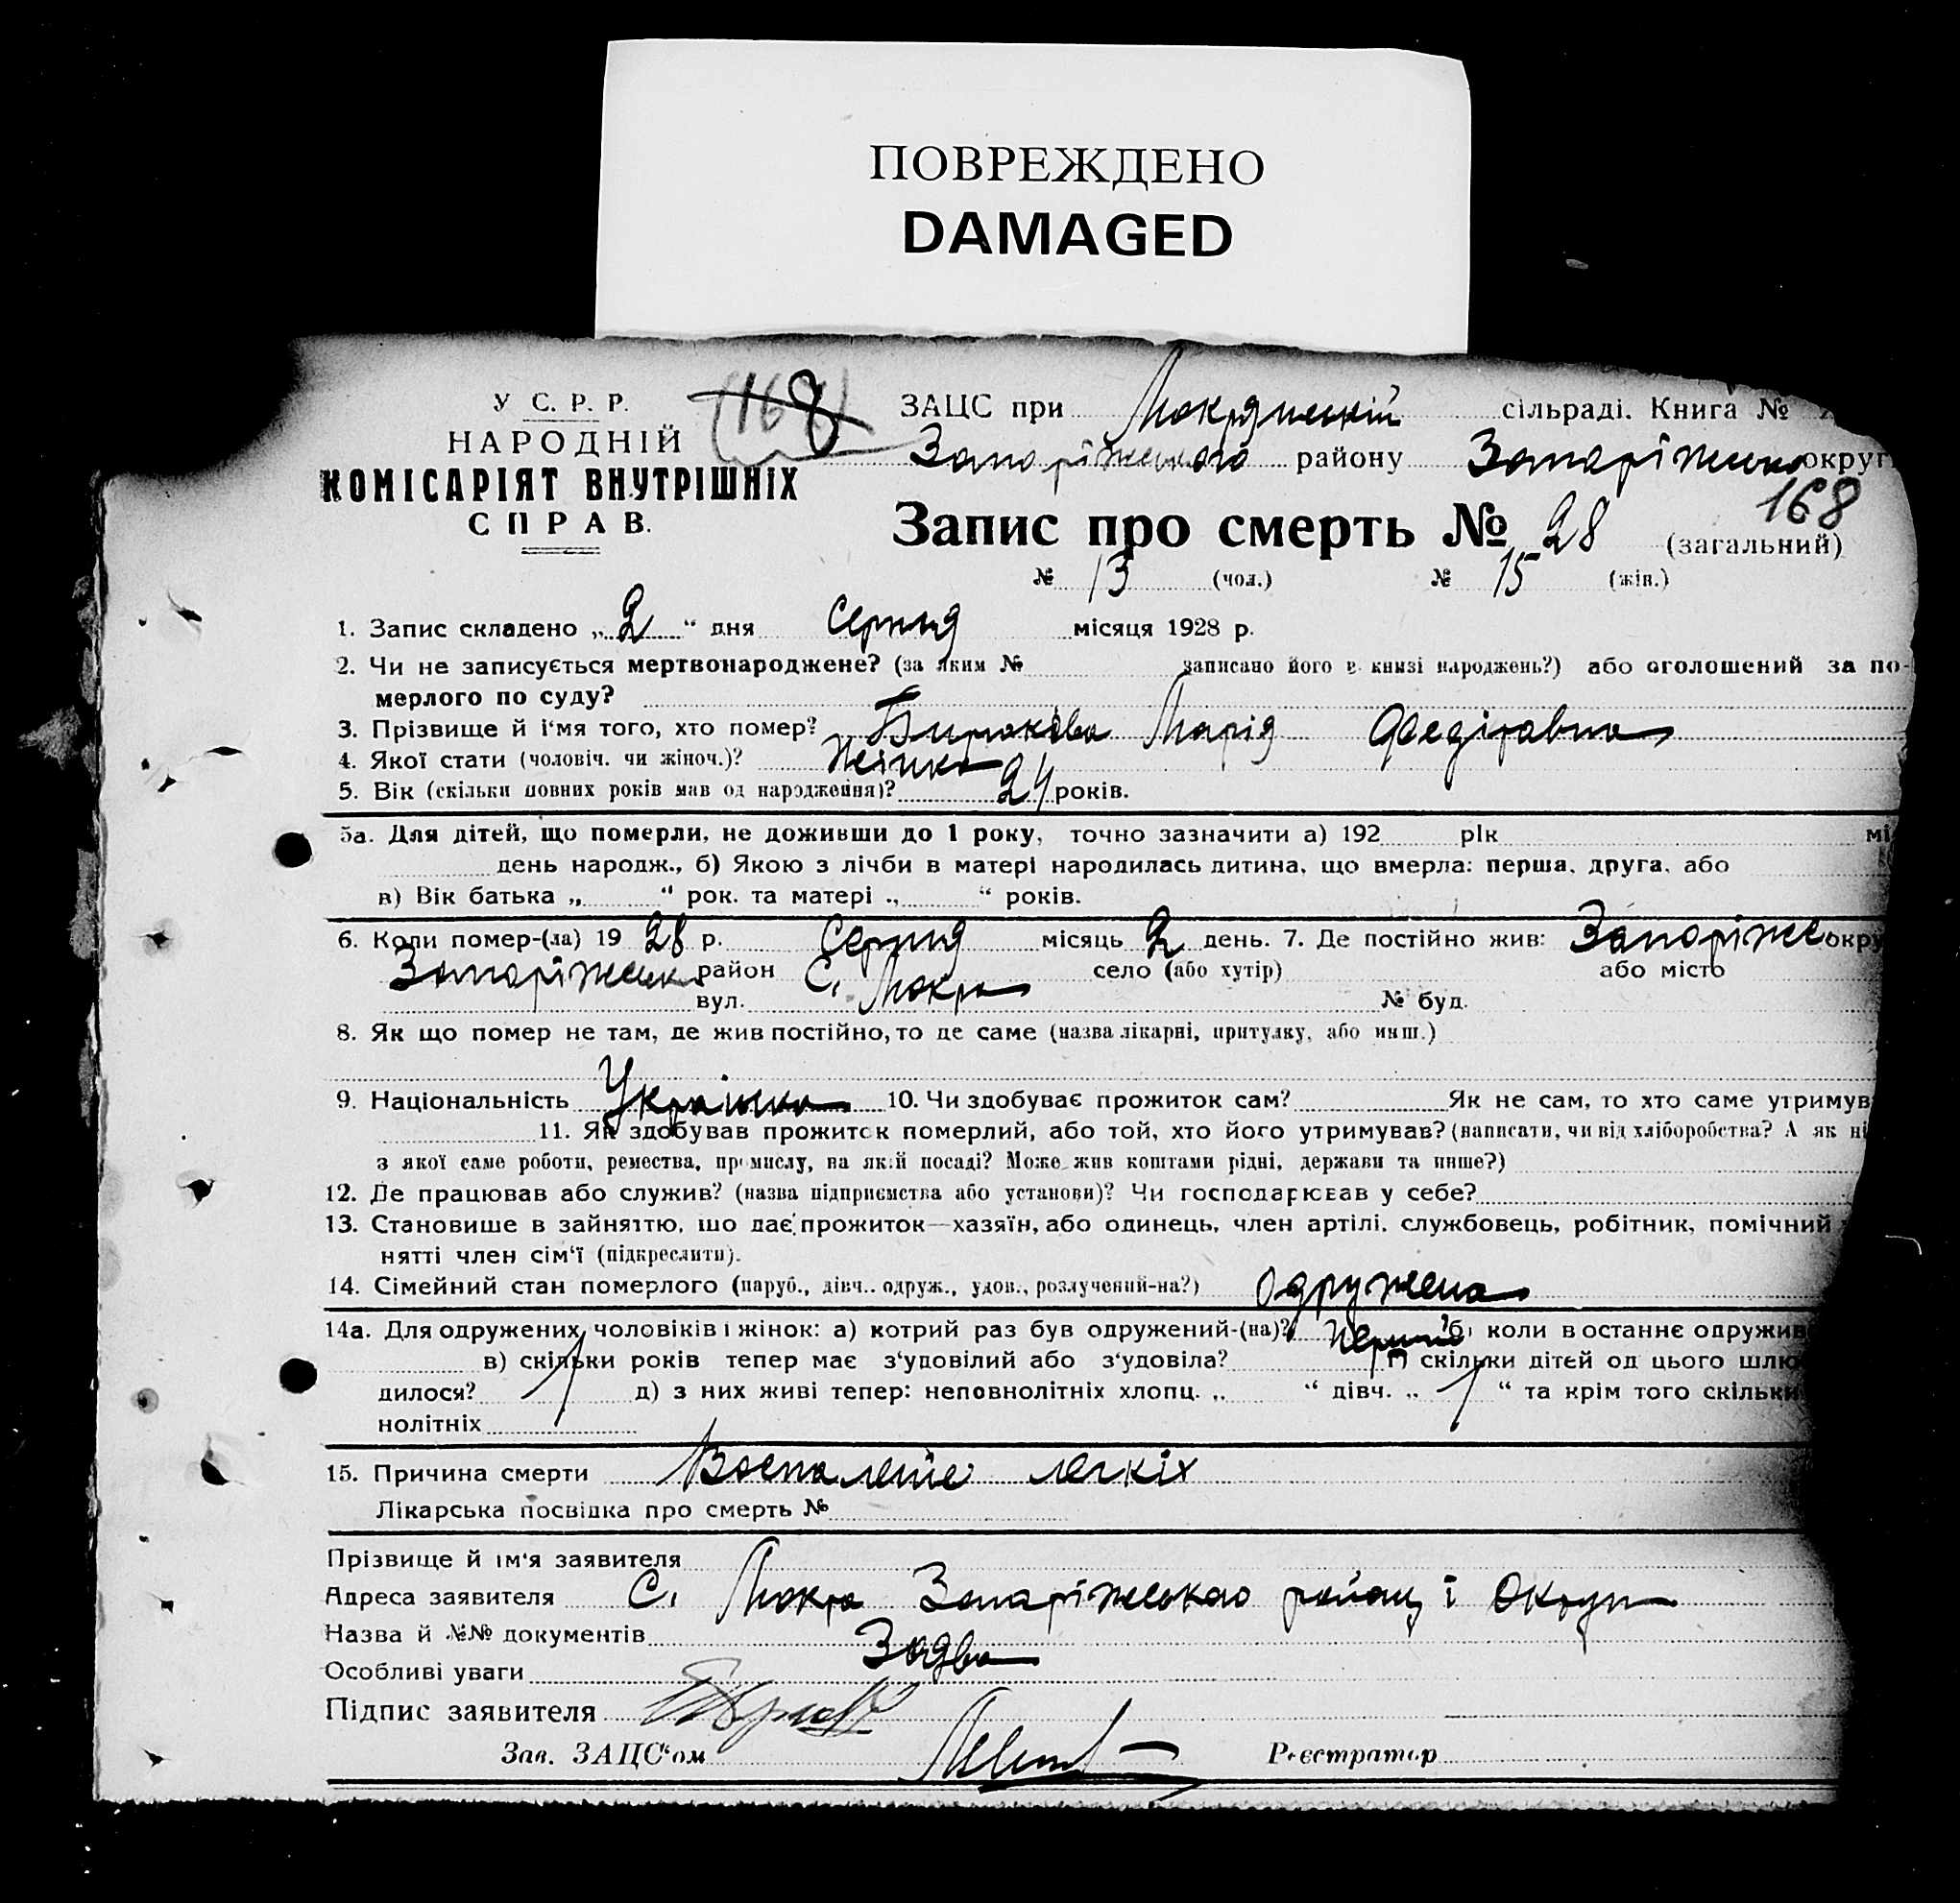 ПОВРЕЖДЕНО
DAMAGED
У С. Р. Р.
НАРОДНІЙ
КОМІСАРІЯТ ВНУТРІШНІХ
СПРАВ.
168
ЗАЦС при Мокрянській сільраді. Книга №
Запоріжського району Запоріжсько округ
168
Запис про смерть № 28 (загальний)
№ 13 (чол.) № 15 (жін.)
1. Запис складено „ 2 “ дня Серпня місяця 1928 р.
2. Чи не записується мертвонароджене? (за яким № записано його в книзі народжень?) або оголошений за по-
мерлого по суду?
3. Прізвище й і‘мя того, хто помер? Бирюкова Марія Федіравна
4. Якої стати (чоловіч. чи жіноч.)? Жінка
5. Вік (скільки повних років мав од народження)? 24 років.
5а. Для дітей, що померли, не доживши до 1 року, точно зазначити а) 192 рік мі
день народж., б) Якою з лічби в матері народилась дитина, що вмерла: перша, друга, або
в) Вік батька „ “ рок. та матері „ “ років.
6. Коли помер-(ла) 19 28 р. Серпня місяць 2 день. 7. Де постійно жив: Запоріжс окру
Запоріжськ район С. Мокра село (або хутір) або місто
вул. № буд.
8. Як що помер не там, де жив постійно, то де саме (назва лікарні, притулку, або инш.)
9. Національність Українка 10. Чи здобуває прожиток сам? Як не сам, то хто саме утримув
11. Як здобував прожиток померлий, або той, хто його утримував? (написати, чи від хліборобства? А як ні
з якої саме роботи, ремества, промислу, на якій посаді? Може жив коштами рідні, держави та инше?)
12. Де працював або служив? (назва підприємства або установи)? Чи господарював у себе?
13. Становише в зайняттю, що дає прожиток—хазяїн, або одинець, член артілі, службовець, робітник, помічний
нятті член сім‘ї (підкреслити).
14. Сімейний стан померлого (паруб., дівч.. одруж., удов., розлучений-на?) Одружена
14а. Для одружених чоловіків і жінок: а) котрий раз був одружений-(на)? б) коли в останнє одружив
в) скільки років тепер має з‘удовілий або з‘удовіла? г) скільки дітей од цього шлю
дилося? 1 д) з них живі тепер: неповнолітніх хлопц. „ “ дівч. „ 1 “ та крім того скільки
нолітніх
15. Причина смерти Воспаленіе легкіх
Лікарська посвідка про смерть №
Прізвище й ім‘я заявителя
Адреса заявителя С. Мокра Запаріжськао району і Округи
Назва й №№ документів Заява
Особливі уваги
Підпис заявителя
Зав. ЗАЦС‘ом Реєстратор